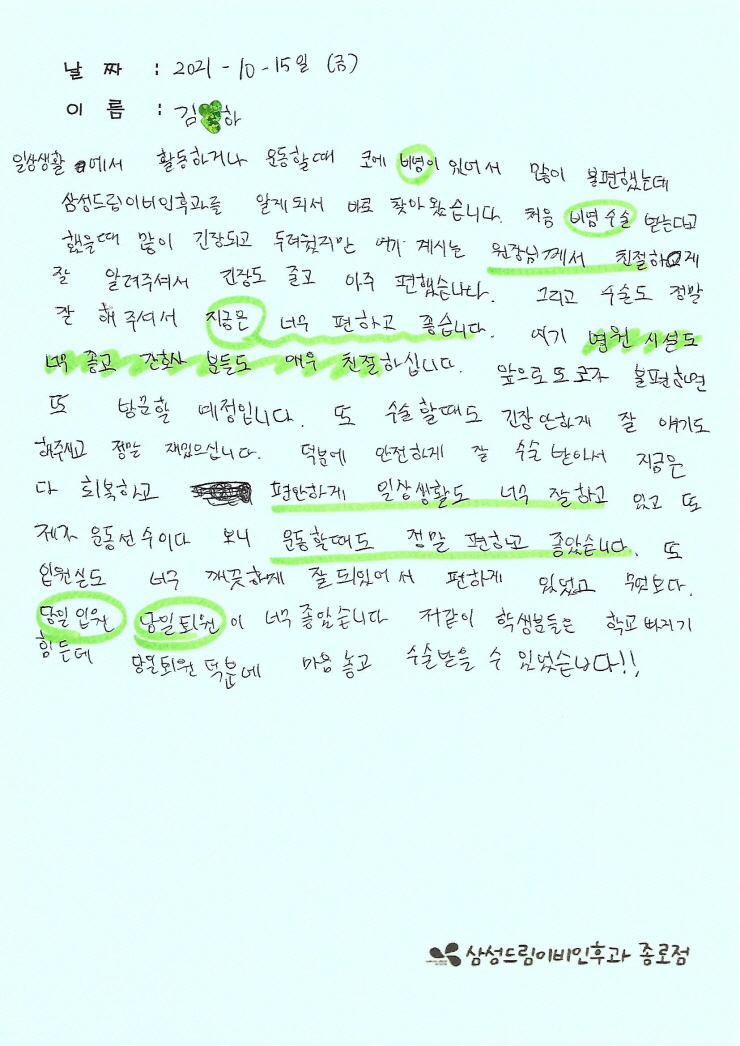 날 짜 : 2021-10-15일 (금)
이 름 : 김 하
일상생활 에서 활동하거나 운동할때 코에 비염이 있어서 많이 불편했는데
삼성드림이비인후과를 알게되서 바로 찾아왔습니다. 처음 비염 수술 받는다고
했을때 많이 긴장되고 두려웠지만 여기 계시는 원장님께서 친절하게
잘 알려주셔서 긴장도 줄고 아주 편했습니다. 그리고 수술도 정말
잘 해 주셔서 지금은 너무 편하고 좋습니다. 여기 병원 시설도
너무 좋고 간호사 분들도 매우 친절하십니다. 앞으로 또 코가 불편하면
또 방문할 예정입니다. 또 수술할때도 긴장안하게 잘 얘기도
해주시고 정말 재밌으십니다. 덕분에 안전하게 잘 수술 받아서 지금은
다 회복하고 편안하게 일상생활도 너무 잘하고 있고 또
제가 운동선수이다 보니 운동할때도 정말 편하고 좋았습니다. 또
입원실도 너무 깨끗하게 잘 되있어서 편하게 있었고 무엇보다.
당일 입원 당일 퇴원이 너무 좋았습니다 저같이 학생분들은 학교 빠지기
힘든데 당일퇴원 덕분에 마음 놓고 수술받을 수 있었습니다!!
삼성드림이비인후과 종로점